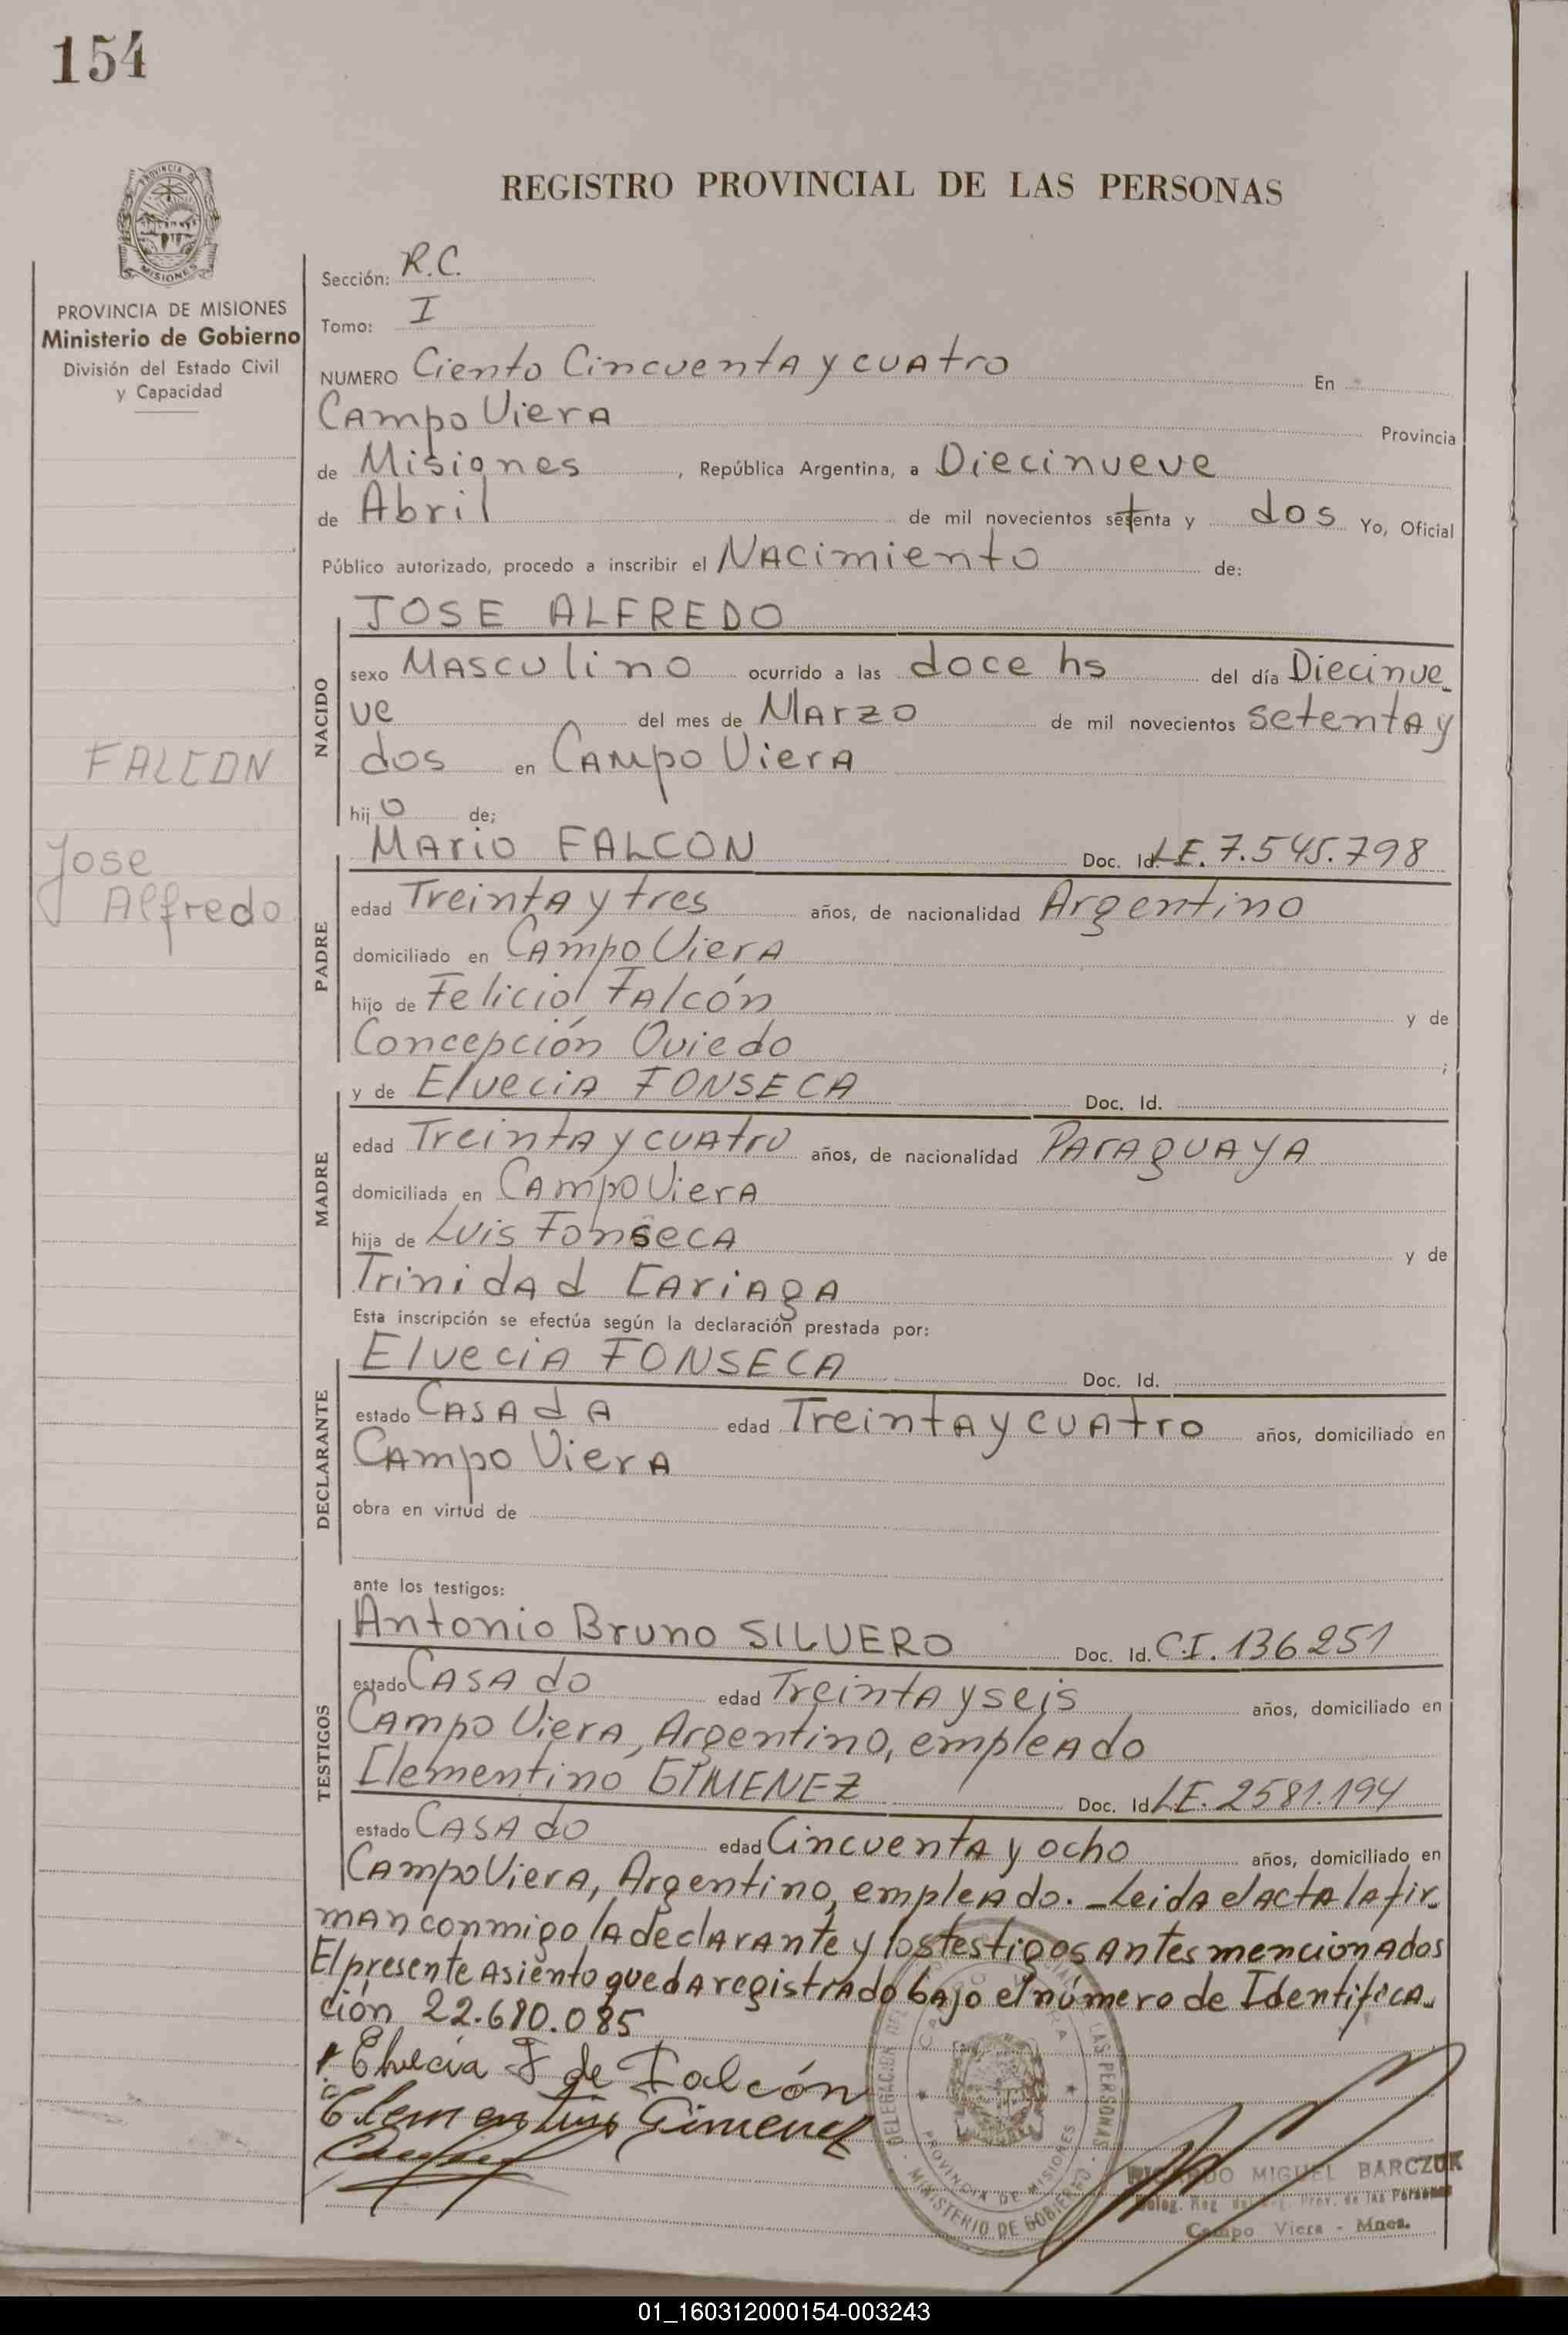 154
PROVINCIA DE MISIONES
PROVINCIA DE MISIONES
Ministerio de Gobierno
División del Estado Civil
y Capacidad
FALCON
Jose
Alfredo
REGISTRO PROVINCIAL DE LAS PERSONAS
Sección: R.C.
Tomo: I
NUMERO Ciento Cincuenta y cuatro En
Campo Viera Provincia
de Misiones, República Argentina, a Diecinueve
de Abril de mil novecientos setenta y dos Yo, Oficial
Público autorizado, procedo a inscribir el Nacimiento de:
NACIDO
JOSE ALFREDO
sexo Masculino ocurrido a las doce hs del día Diecinue-
ve del mes de Marzo de mil novecientos setenta y
dos en Campo Viera
hijo de;
PADRE
Mario FALCON Doc. Id. L.E. 7.545.798
edad Treinta y tres años, de nacionalidad Argentino
domiciliado en Campo Viera
hijo de Felicio Falcón y de
Concepción Oviedo ;
MADRE
y de Elvecia FONSECA Doc. Id.
edad Treinta y cuatro años, de nacionalidad Paraguaya
domiciliada en Campo Viera
hija de Luis Fonseca y de
Trinidad Cariaga
Esta inscripción se efectúa según la declaración prestada por:
DECLARANTE
Elvecia FONSECA Doc. Id.
estado Casada edad Treinta y cuatro años, domiciliado en
Campo Viera
obra en virtud de
ante los testigos:
TESTIGOS
Antonio Bruno SILVERO Doc. Id. C.I. 136251
estado Casado edad Treinta y seis años, domiciliado en
Campo Viera, Argentino, empleado
Clementino GIMENEZ Doc. Id L.E. 2581.194
estado Casado edad Cincuenta y ocho años, domiciliado en
Campo Viera, Argentino, empleado. - Leida el acta la fir-
man conmigo la declarante y los testigos antes mencionados
El presente asiento queda registrado bajo el número de Identifica-
ción 22.680.085
Elvecia F de Falcón
Clementino Gimenez
DELEGACION DEL LAS PERSONAS
CAMPO VIERA
PROVINCIA DE MISIONES
MINISTERIO DE GOBIERNO
RICARDO MIGUEL BARCZUK
Deleg. Reg. Prov. de las Personas
Campo Viera - Mnes.
01_160312000154-003243